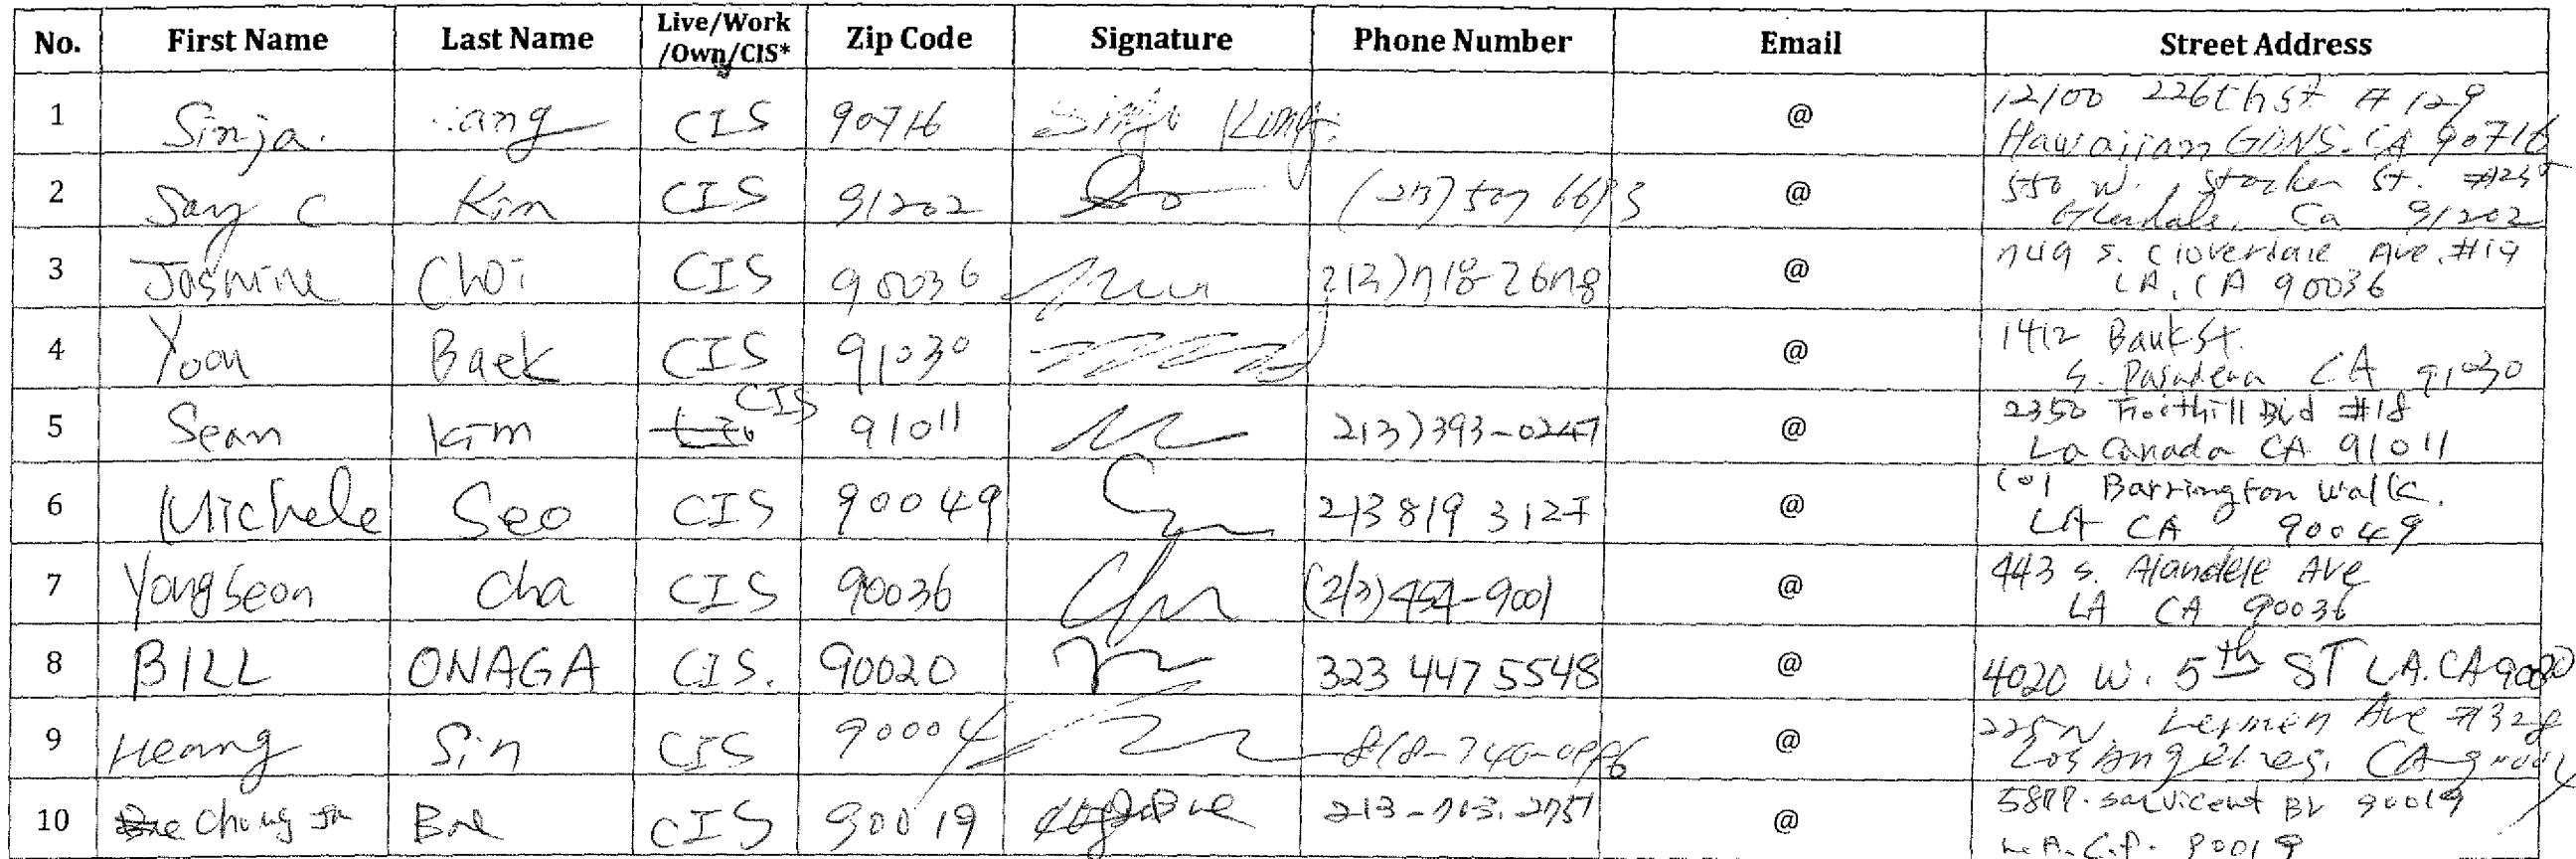 No. First Name Last Name Live/Work /Own/CIS* Zip Code Signature Phone Number Email Street Address
1 Sinja. ang CIS 90716 @ 12100 226th st # 129
Hawaiian GDNS. CA 90716
2 Kim CIS 91202 @ 550 W. Stocker St.
Glendale, Ca 91202
3 Jasmine Choi CIS 90036 213) 718-2678 @ 749 S. Cloverdale Ave. #19
LA, CA 90036
4 Yoon Baek CIS 91030 @ 1412 Bank St.
S. Pasadena CA 91030
5 Sean Kim CIS 91011 213) 393-0247 @ 2350 Foothill Blvd #18
La Canada CA 91011
6 Michele Seo CIS 90049 213 819 3127 @ 101 Barrington Walk.
LA CA 90049
7 YongSeon Cha CIS 90036 (213) 454-9001 @ 443 S. Ave
LA CA 90036
8 BILL ONAGA CIS. 90020 323 447 5548 @ 4020 W. 5th ST LA. CA 90020
9 Heang Sin CIS 90004 @ 225 N. Ave #328
Los Angeles, CA 90004
10 Chung Ja Bae CIS 90019 @ 90019
90019